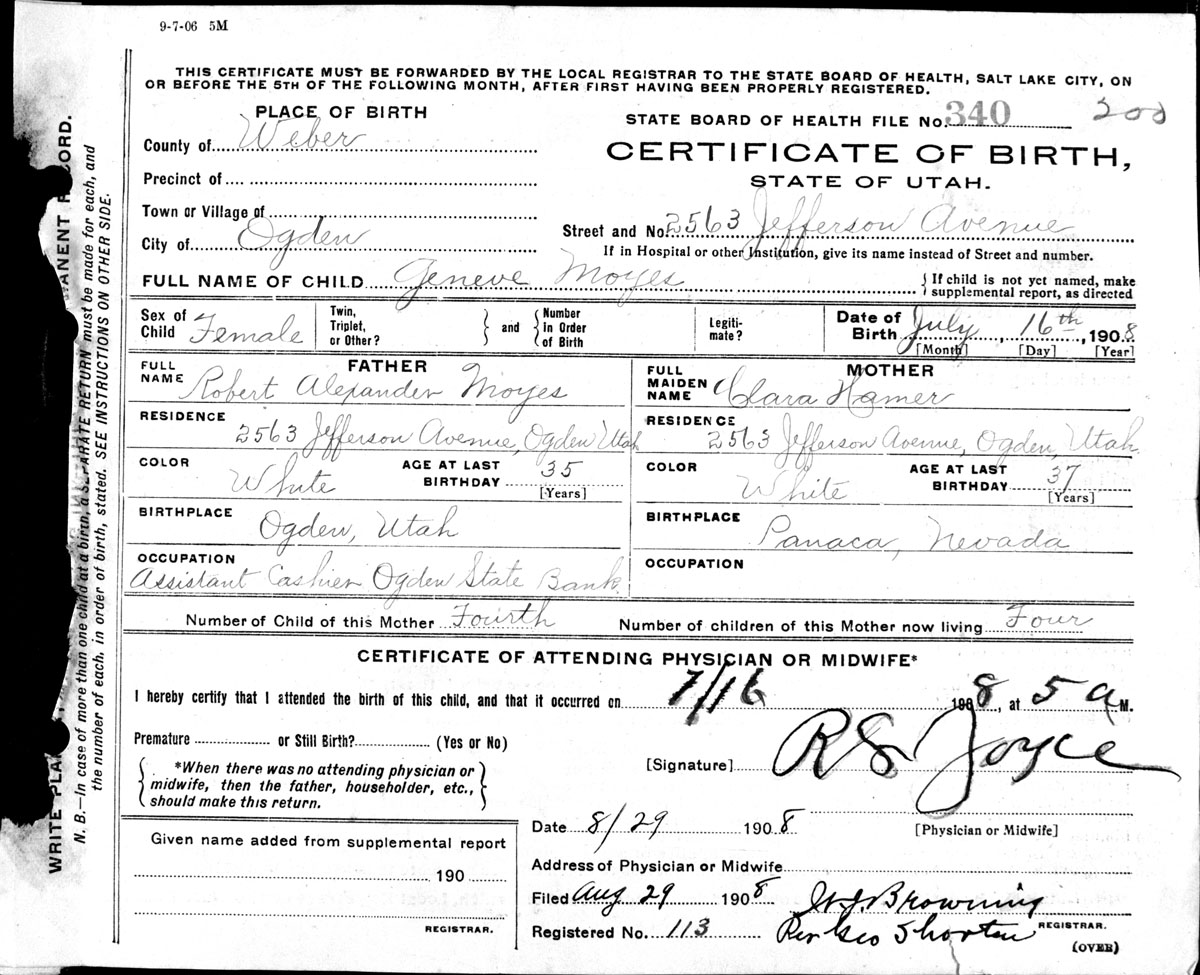 9-7-06 5M
THIS CERTIFICATE MUST BE FORWARDED BY THE LOCAL REGISTRAR TO THE STATE BOARD OF HEALTH, SALT LAKE CITY, ON
OR BEFORE THE 5TH OF THE FOLLOWING MONTH, AFTER FIRST HAVING BEEN PROPERLY REGISTERED.
PLACE OF BIRTH
STATE BOARD OF HEALTH FILE No. 340 200
County of Weber
CERTIFICATE OF BIRTH,
STATE OF UTAH.
Precinct of
Town or Village of
Street and No. 2563 Jefferson Avenue
City of Ogden
If in Hospital or other Institution, give its name instead of Street and number.
FULL NAME OF CHILD Geneve Moyes
If child is not yet named, make
supplemental report, as directed
Sex of Child Female
Twin, Triplet, or Other?
and
Number in Order of Birth
Legiti-mate?
Date of Birth July 16th, 1908
[Month] [Day] [Year]
FATHER
FULL NAME Robert Alexander Moyes
MOTHER
FULL MAIDEN NAME Clara Hamer
RESIDENCE 2563 Jefferson Avenue, Ogden Utah
RESIDENCE 2563 Jefferson Avenue, Ogden, Utah
COLOR White
AGE AT LAST BIRTHDAY 35 [Years]
COLOR White
AGE AT LAST BIRTHDAY 37 [Years]
BIRTHPLACE Ogden, Utah
BIRTHPLACE Panaca, Nevada
OCCUPATION Assistant Cashier Ogden State Bank
OCCUPATION
Number of Child of this Mother Fourth
Number of children of this Mother now living Four
CERTIFICATE OF ATTENDING PHYSICIAN OR MIDWIFE*
I hereby certify that I attended the birth of this child, and that it occurred on 7/16 1908, at 5 a M.
Premature or Still Birth? (Yes or No)
[Signature] Joyce
*When there was no attending physician or
midwife, then the father, householder, etc.,
should make this return.
Date 8/29 1908
[Physician or Midwife]
Given name added from supplemental report
190
REGISTRAR.
Address of Physician or Midwife
Filed Aug 29 1908 Browning
REGISTRAR.
Registered No. 113 Per Geo Shorten
(OVER)
N. B.—In case of more than one child at a birth, a SEPARATE RETURN must be made for each, and
the number of each, in order of birth, stated. SEE INSTRUCTIONS ON OTHER SIDE.